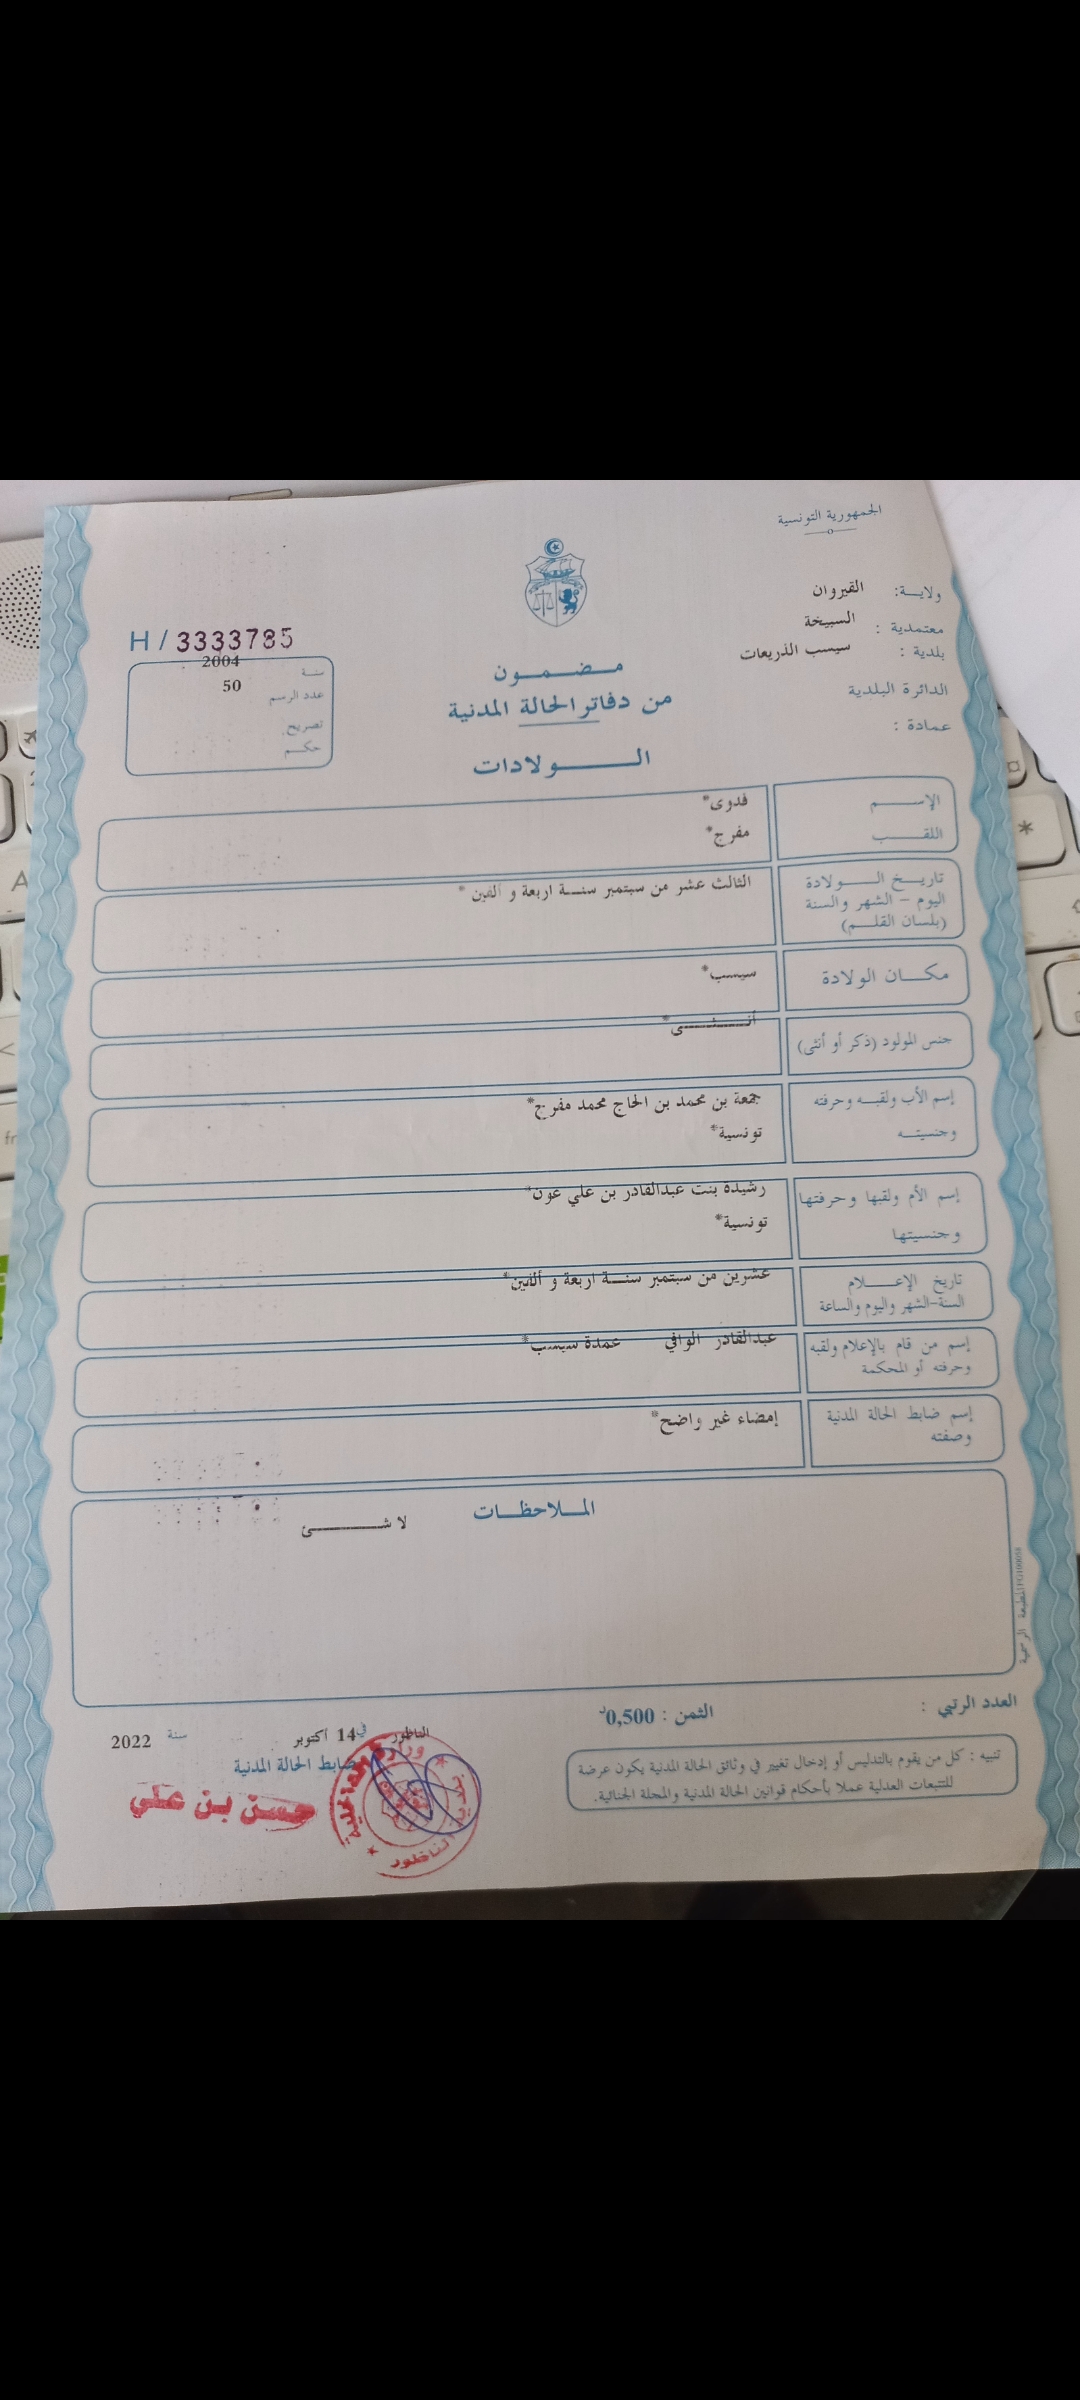 الجمهورية التونسية
ولايـــة: القيروان
معتمدية : السبيخة
بلدية : سيسب الذريعات
الدائرة البلدية
عمادة :
H / 3333785
سنـة 2004
عدد الرسم 50
تصريح
حكـم
مـضـمـون
من دفاتر الحالة المدنية
الــولادات
الإســـم فدوى*
اللقـــب مفرج*
تاريــخ الـــولادة الثالث عشر من سبتمبر سنـــة اربعة و ألفين *
اليوم – الشهر والسنة
(بلسان القلـــم)
مكـــان الولادة سيسب*
جنس المولود (ذكر أو أنثى) أنـــثـــى*
إسم الأب ولقبـــه وحرفته جمعة بن محمد بن الحاج محمد مفرج*
وجنسيتـــه تونسية*
إسم الأم ولقبها وحرفتها رشيدة بنت عبدالقادر بن علي عون*
وجنسيتها تونسية*
تاريخ الإعـــلام عشرين من سبتمبر سنـــة اربعة و ألفين*
السنة-الشهر واليوم والساعة
إسم من قام بالإعلام ولقبه عبدالقادر الوافي عمدة سيسب*
وحرفته أو المحكمة
إسم ضابط الحالة المدنية إمضاء غير واضح*
وصفته
المـــلاحظـــات
لا شـــــئ
المطبعة الرسمية
العدد الرتبي :
الثمن : 0,500د
تنبيه : كل من يقوم بالتدليس أو إدخال تغيير في وثائق الحالة المدنية يكون عرضة
للتتبعات العدلية عملا بأحكام قوانين الحالة المدنية والمجلة الجنائية.
الناظور في 14 أكتوبر سنة 2022
ضابط الحالة المدنية
حسن بن علي
وزارة الداخلية
بلدية الناظور